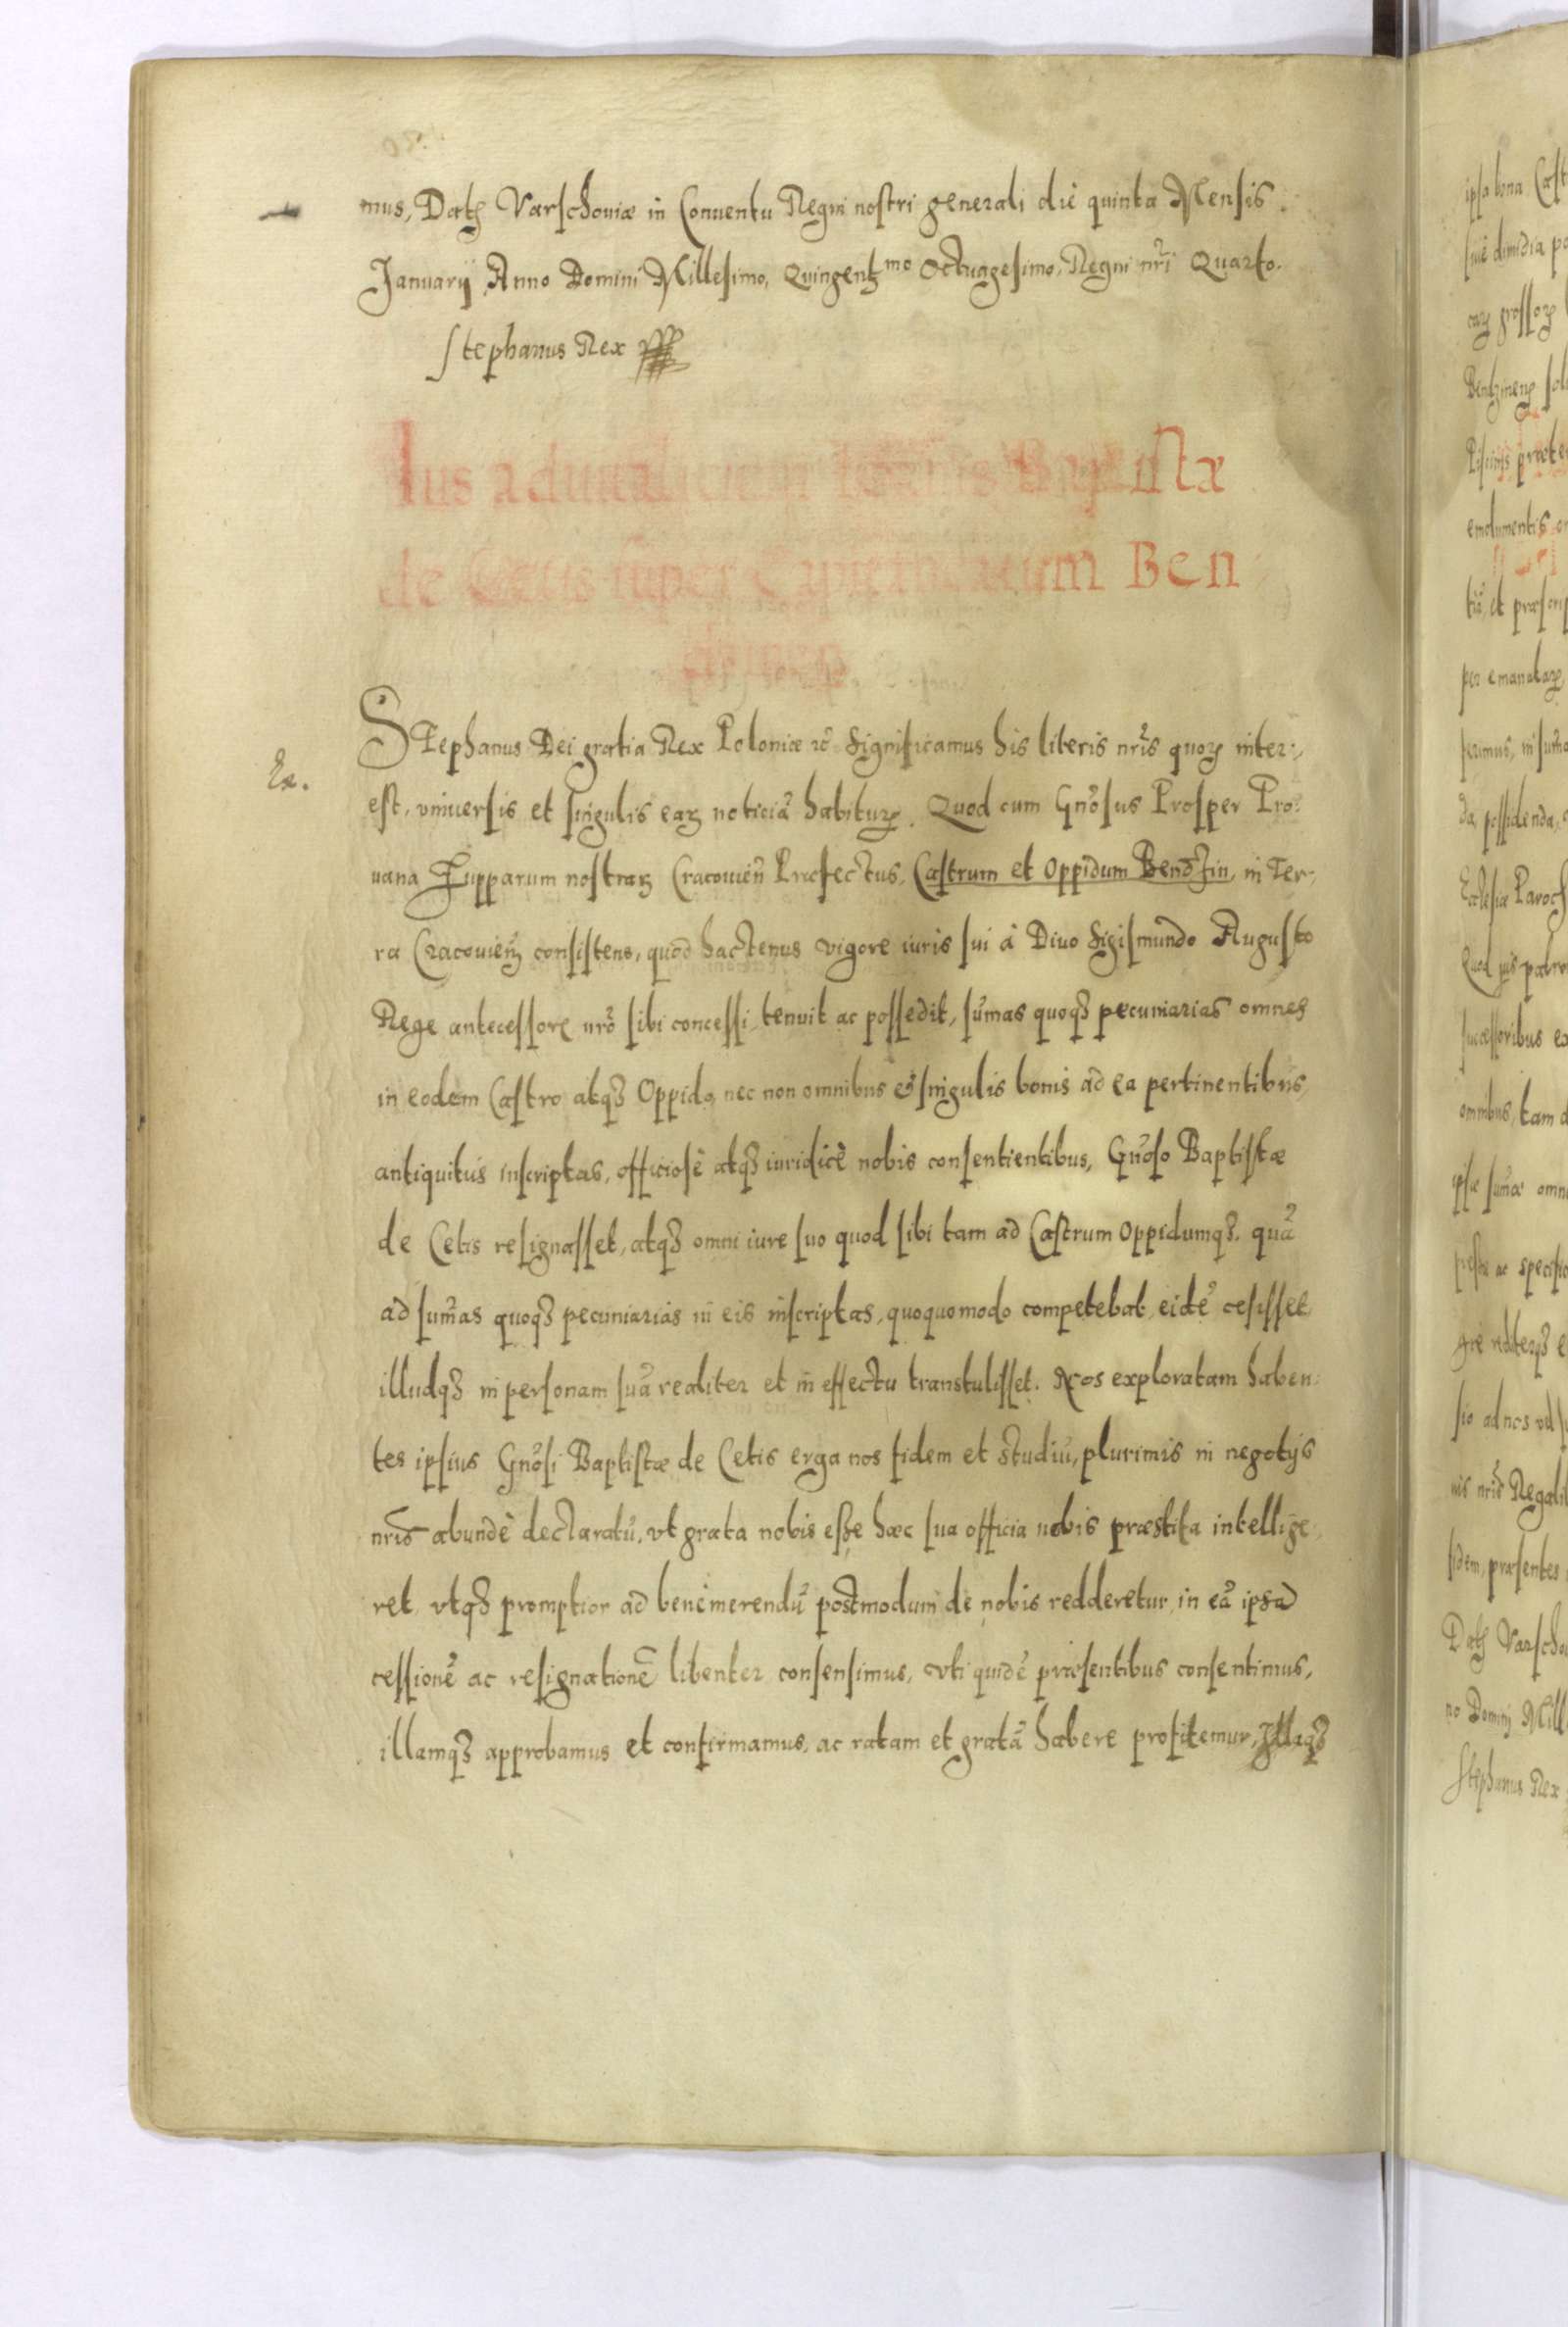 mus, Datꝭ Varschouiæ in Conuentu Regni nostri generali die quinta Mensis
Januarij Anno Domini Millesimo, Quingentꝭmo Octuagesimo, Regni nri Quarto.
Stephanus Rex
Ius aduitalicium Ioannis Baptistæ
de Cetis super Capitaneatum Ben
Ex.
Stephanus Dei gratia Rex Poloniæ ꝛc̄ Significamus his literis nris quoꝝ inter:
est, vniuersis et singulis eaꝝ noticiã habituꝝ. Quod cum Gnõsus Prosper Pro:
uana Zupparum nostraꝝ Cracouieñ Præfectus, Castrum et Oppidum Bendzin, in Ter:
ra Cracouieñ consistens, quod hactenus vigore iuris sui à Diuo Sigismundo Augusto
Rege antecessore nrõ sibi concessi, tenuit ac possedit, sũmas quoqꝫ pecuniarias omnes
in eodem Castro atqꝫ Oppido, nec non omnibus & singulis bonis ad ea pertinentibus,
antiquitus inscriptas, officiosè atqꝫ iuridicè nobis consentientibus, Gnõso Baptistæ
de Cetis resignasset, atqꝫ omni iure suo quod sibi tam ad Castrum Oppidumqꝫ, quã
ad sum̃as quoqꝫ pecuniarias in eis inscriptas, quoquomodo competebat, eidẽ cesisset
illudqꝫ in personam suã realiter et in effectu transtulisset. Nos exploratam haben:
tes ipsius Gnõsi Baptistæ de Cetis erga nos fidem et studiũ, plurimis in negotijs
nris abundè declaratũ, vt grata nobis esse hæc sua officia nobis præstita intellige:
ret, vtqꝫ promptior ad benemerendũ postmodum de nobis redderetur, in eã ipsã
cessionẽ ac resignationẽ libenter consensimus, vti quidẽ præsentibus consentimus,
illamqꝫ approbamus et confirmamus, ac ratam et gratã habere profitemur, Illaqꝫ